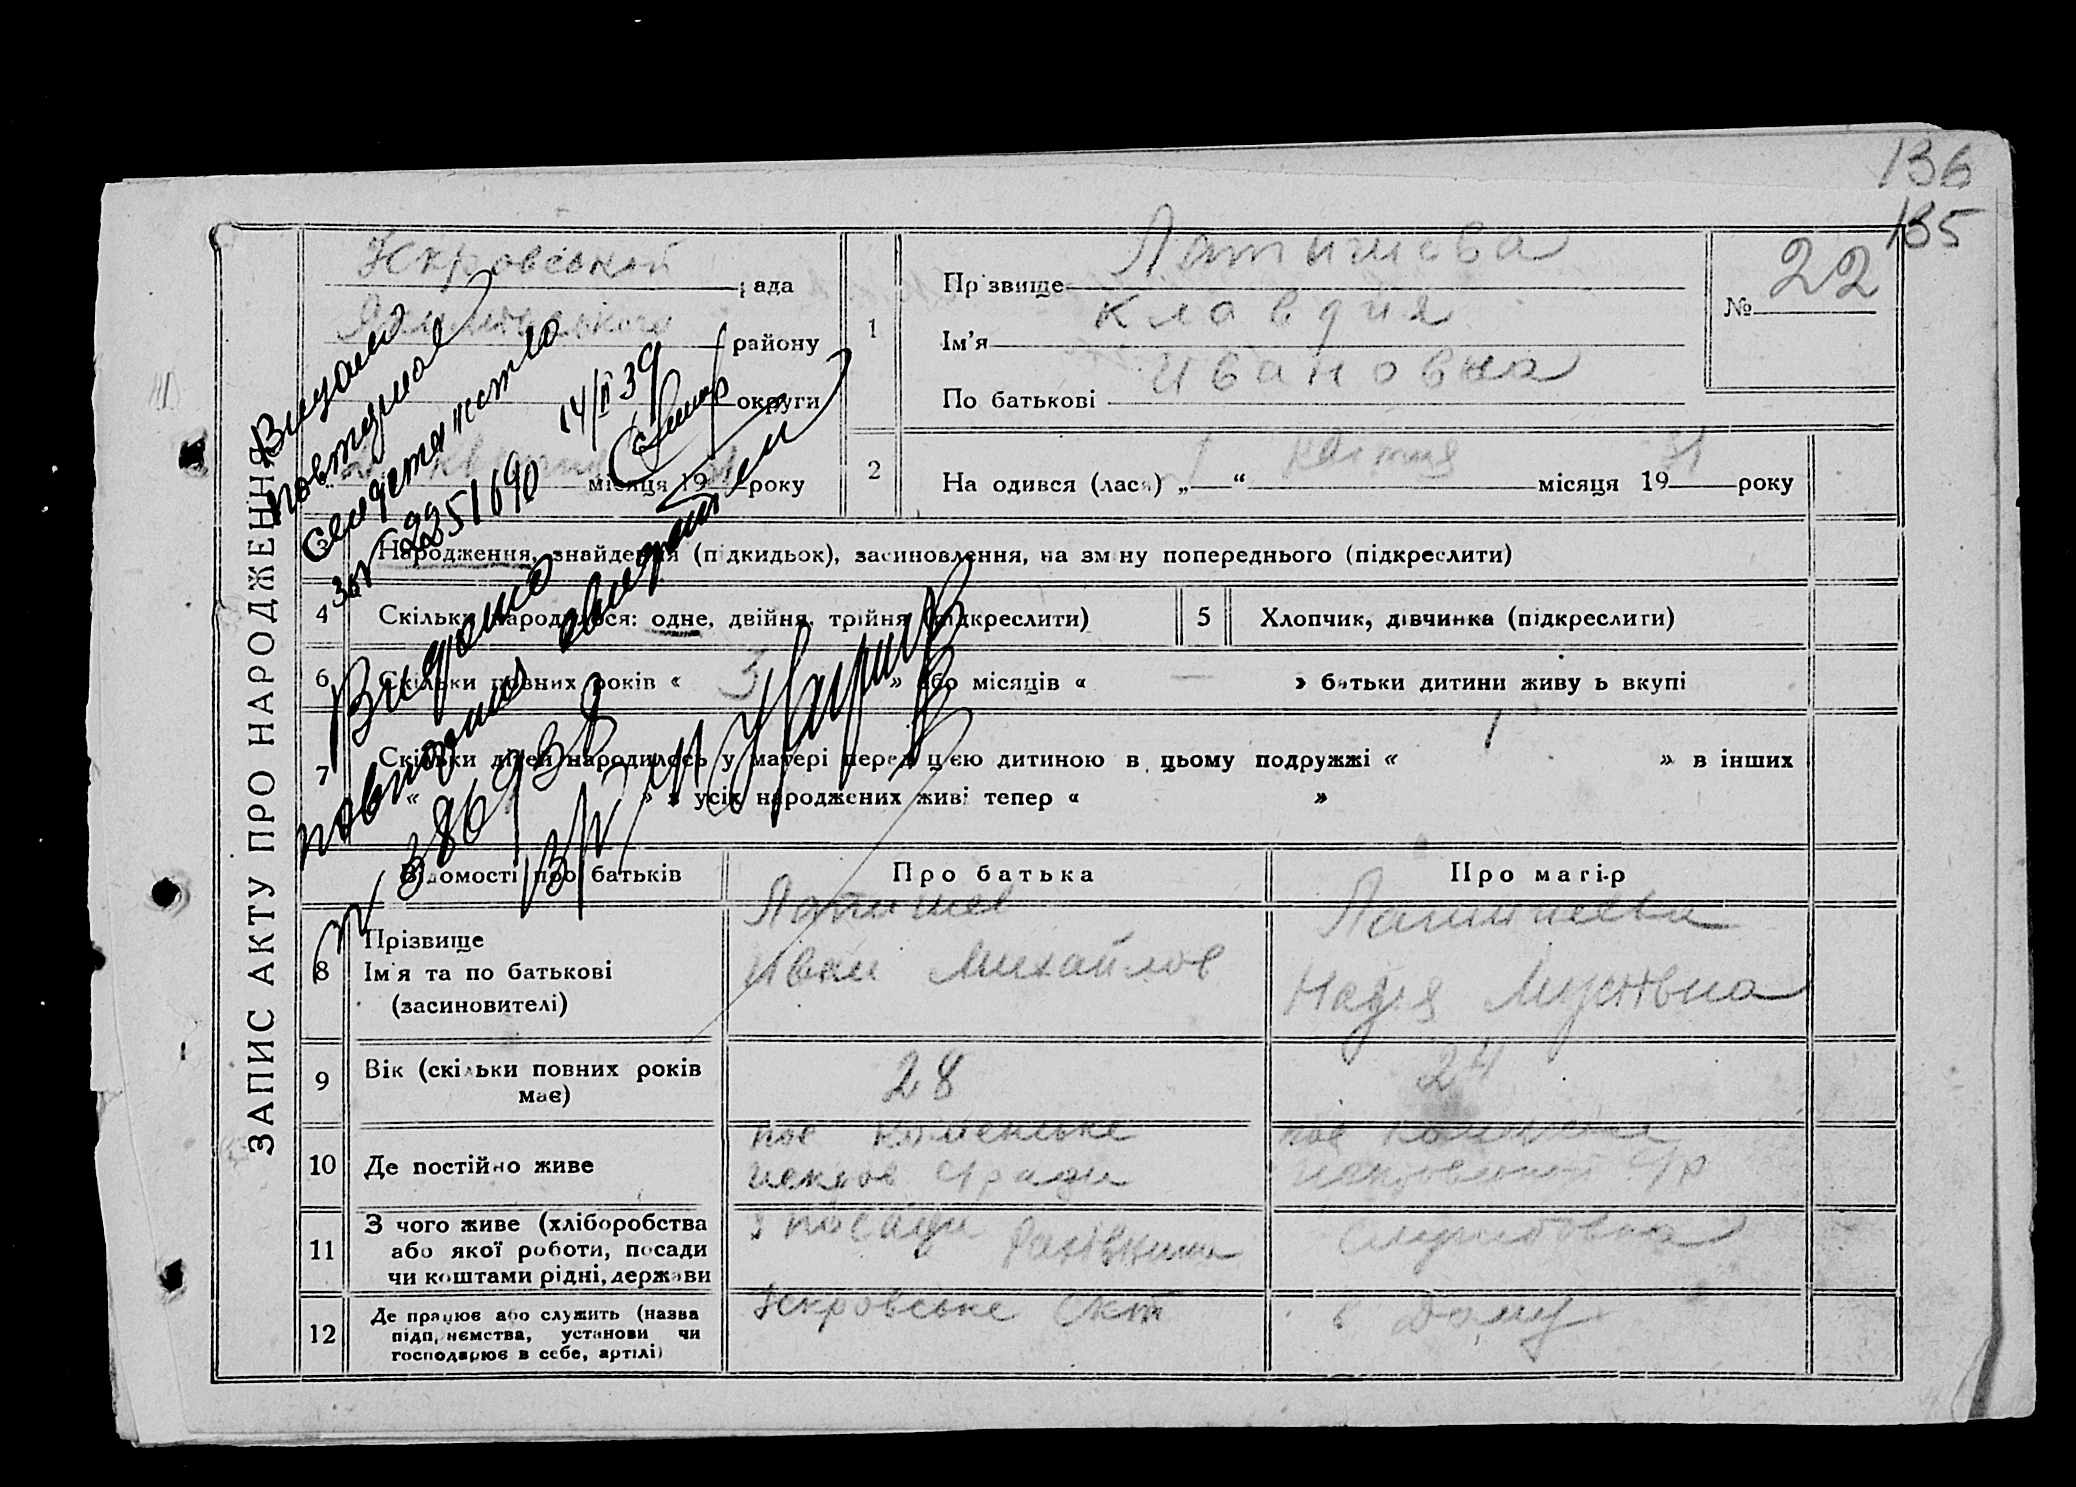 136
135
ЗАПИС АКТУ ПРО НАРОДЖЕННЯ
Іскровської рада
району
округи
місяця 19 року
1
Прізвище Латишева
Ім'я Клавдия
По батькові Ивановна
№ 22
2
На одився (лася) „1“ квітня місяця 1931 року
3 Народження, знайдення (підкидьок), засиновлення, на зміну попереднього (підкреслити)
4 Скільки народилося: одне, двійня, трійня (підкреслити)
5 Хлопчик, дівчинка (підкреслити)
6 Скільки повних років « 3 » або місяців « — » батьки дитини живуть вкупі
7 Скільки дітей народилось у матері перед цією дитиною в цьому подружжі « 1 » в інших
« » з усіх народжених живі тепер « »
Відомості про батьків
Про батька
Про матір
8 Прізвище
Ім'я та по батькові
(засиновителі)
Латишев
Иван Михайлов
Латишева
Надія
9 Вік (скільки повних років
має)
28
24
10 Де постійно живе
пос
искров с/ради
пос
с/р
11 З чого живе (хліборобства
або якої роботи, посади
чи коштами рідні, держави
з посади
12 Де працює або служить (назва
підприємства, установи чи
господарює в себе, артілі)
Іскровське
в дому
Видано
повторное
свидетельство
за № 2251690 14/II 39
Видано
повторно свидет
№ 386938